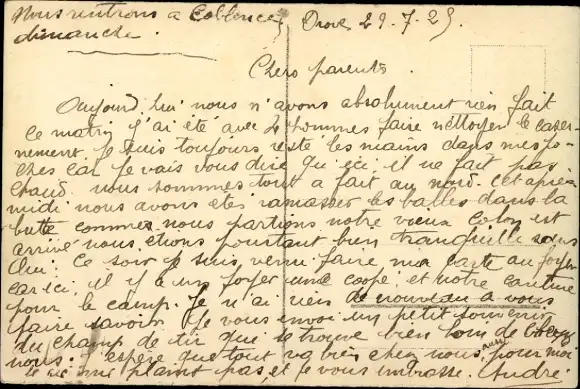 Nous rentrons a Coblence Drove 29.7.25
dimanche.
Chers parents.
Aujourd'hui nous n'avons absolument rien fait
ce matin j'ai été avec 2 hommes faire nettoyer le caser-
nement. je suis toujours resté les mains dans mes po-
ches car je vais vous dire qu'ici il ne fait pas
chaud. nous sommes tout a fait au nord. Cet après
midi nous avons etés ramasser les balles dans la
butte comme nous partions notre vieux Colon est
arrivé nous étions pourtant bien tranquille sans
lui. Ce soir je suis venu faire ma carte au foyer
car ici il y a un foyer une coopé et notre cantine
pour le camp. Je n'ai rien de nouveau a vous
faire savoir. Je vous envoi un petit souvenir
du champ de tir que se trouve bien loin de
nous. J'espère que tout va bien chez nous, pour moi
je ne me plaint pas, et je vous embrasse. André